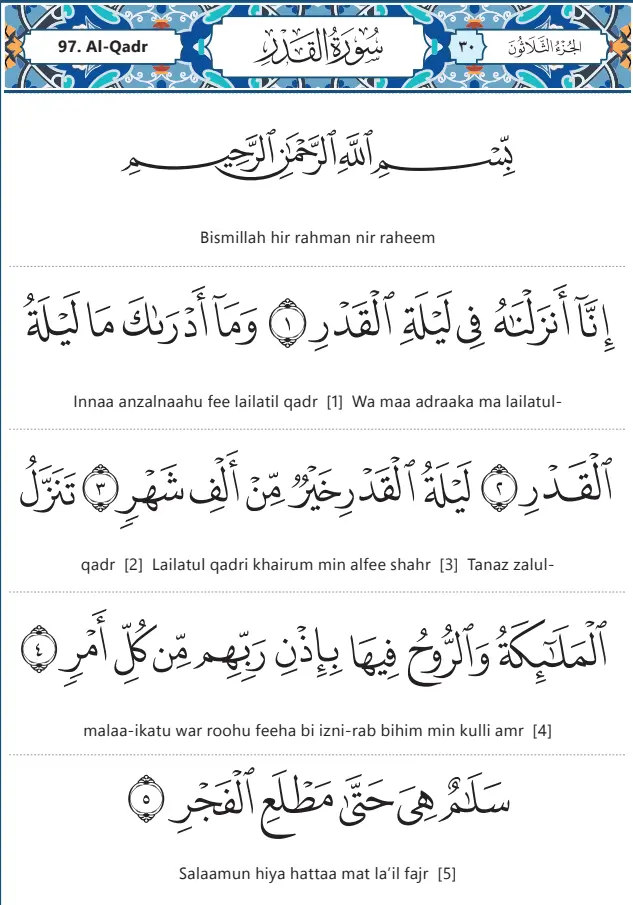 97. Al-Qadr
سُورَةُ القَدْرِ
٣٠
الجُزْءُ الثَّلَاثُونَ
بِسْمِ ٱللَّهِ ٱلرَّحْمَٰنِ ٱلرَّحِيمِ
Bismillah hir rahman nir raheem
إِنَّآ أَنزَلْنَٰهُ فِى لَيْلَةِ ٱلْقَدْرِ ١ وَمَآ أَدْرَىٰكَ مَا لَيْلَةُ
Innaa anzalnaahu fee lailatil qadr [1] Wa maa adraaka ma lailatul-
ٱلْقَدْرِ ٢ لَيْلَةُ ٱلْقَدْرِ خَيْرٌ مِّنْ أَلْفِ شَهْرٍ ٣ تَنَزَّلُ
qadr [2] Lailatul qadri khairum min alfee shahr [3] Tanaz zalul-
ٱلْمَلَٰٓئِكَةُ وَٱلرُّوحُ فِيهَا بِإِذْنِ رَبِّهِم مِّن كُلِّ أَمْرٍ ٤
malaa-ikatu war roohu feeha bi izni-rab bihim min kulli amr [4]
سَلَٰمٌ هِىَ حَتَّىٰ مَطْلَعِ ٱلْفَجْرِ ٥
Salaamun hiya hattaa mat la'il fajr [5]